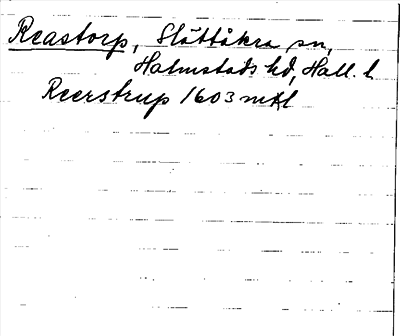 Reastorp, Slättåkra sn,
Halmstads hd, Hall. l
Reerstrup 1603 mtl